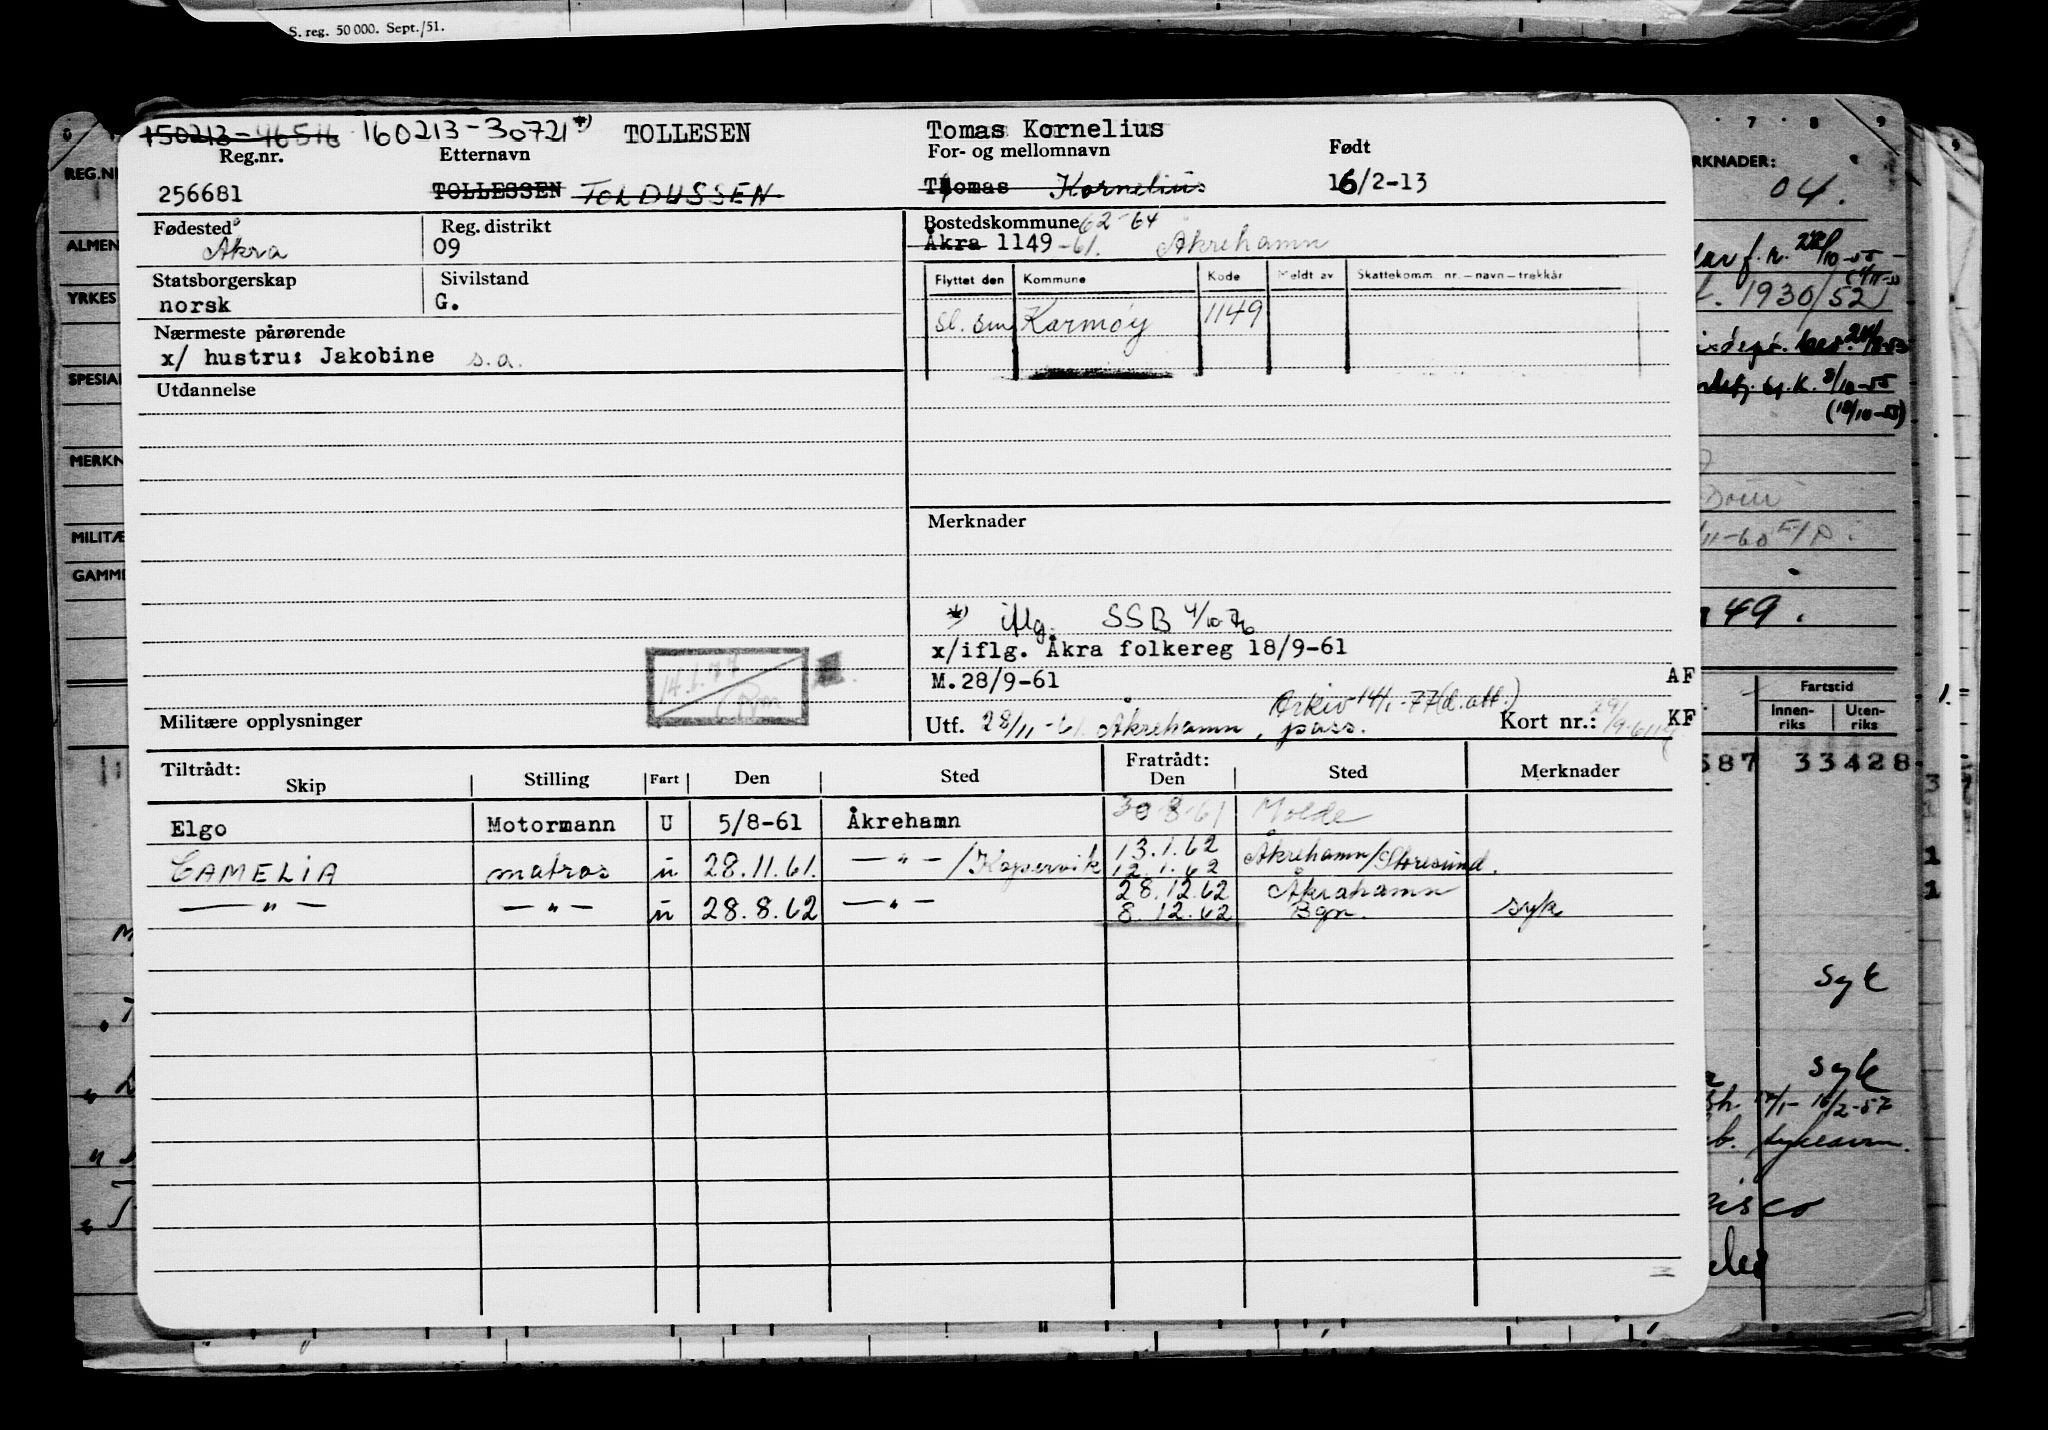 S. reg. 50 000. Sept./51.
150213-46516 160213-30721 *) TOLLESEN Tomas Kornelius
Reg.nr. Etternavn For- og mellomnavn Født
256681 TOLLESSEN TOLDUSSEN Thomas Kornelius 16/2-13
Fødested Reg. distrikt Bostedskommune 62-64
Åkra 09 Åkra 1149 -61. Åkrehamn
Statsborgerskap Sivilstand
norsk G.
Flyttet den Kommune Kode Meldt av Skattekomm. nr. – navn – trekkår
Karmøy 1149
Nærmeste pårørende
x/ hustru: Jakobine s.a.
Utdannelse
Merknader
*) iflg. SSB 4/10-76
x/iflg. Åkra folkereg 18/9-61
M.28/9-61 AF
14.1.77
Arkiv 14/1-77 (d.att.)
Militære opplysninger Utf. 28/11-61 Åkrehamn, pass. Kort nr.: KF
Tiltrådt: Fratrådt:
Skip Stilling Fart Den Sted Den Sted Merknader
Elgo Motormann U 5/8-61 Åkrehamn 30.8.61 Molde
CAMELIA matros u 28.11.61. —"—/Kopervik 13.1.62 12.1.62 Åkrehamn/Storesund.
—"— —"— u 28.8.62 —"— 28.12.62 8.12.62 Åkrahamn Bgn. syk
REG.NR
ALMEN
YRKES
SPESIAL
MERKN
MILITÆ
GAMME
7 8 9
RKNADER:
04.
1930/52
49.
Fartstid
Innen-riks Uten-riks
587 33428
syk
syk